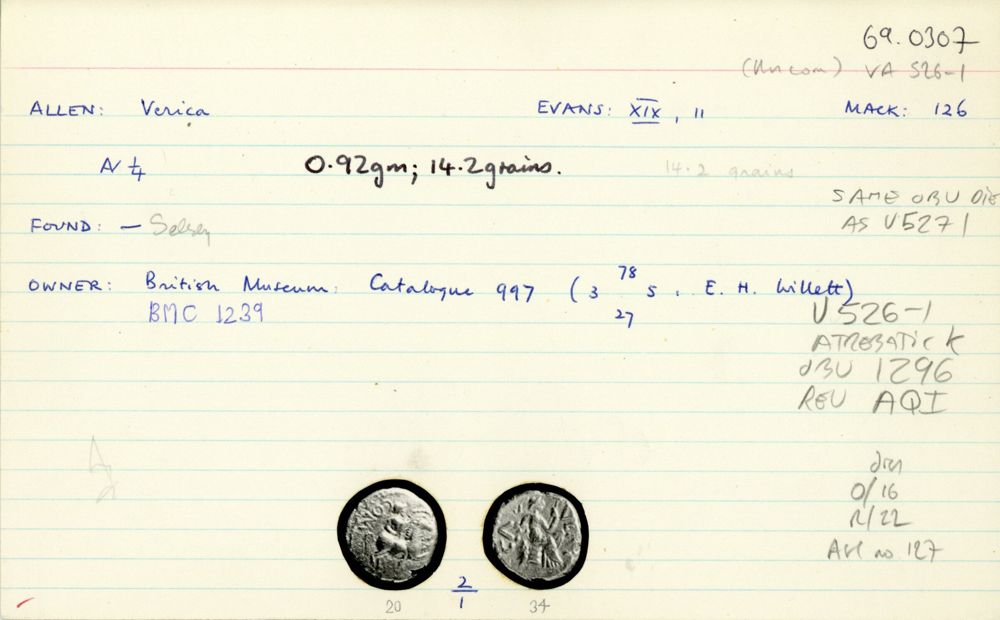 69.0307
(Uncom) VA 526-1
ALLEN: Verica EVANS: XIX, 11 MACK: 126
N 1/4 0.92gm; 14.2grains. 14.2 grains
SAME OBV DIE
AS V5271
FOUND: — Selsey
OWNER: British Museum: Catalogue 997 (3 78/27 S. E. H. Willett)
BMC 1239
V526-1
ATREBATIC K
OBV 1296
REV AQI
dies
O/16
R/22
no 127
2/1
20 34